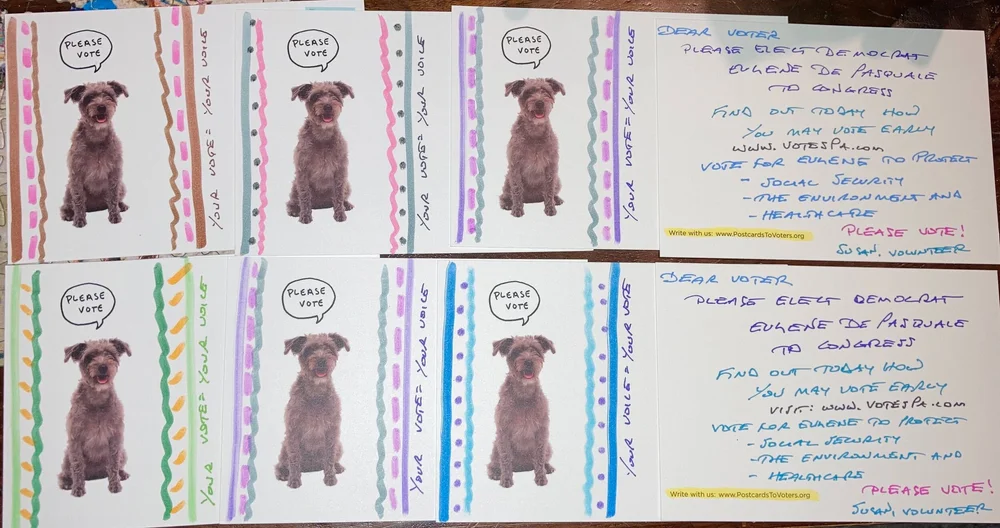 PLEASE
VOTE
YOUR VOTE = YOUR VOICE
PLEASE
VOTE
YOUR VOTE = YOUR VOICE
PLEASE
VOTE
YOUR VOTE = YOUR VOICE
DEAR VOTER
PLEASE ELECT DEMOCRAT
EUGENE DE PASQUALE
TO CONGRESS
FIND OUT TODAY HOW
YOU MAY VOTE EARLY
WWW.VOTESPA.COM
VOTE FOR EUGENE TO PROTECT
- SOCIAL SECURITY
- THE ENVIRONMENT AND
- HEALTHCARE
PLEASE VOTE!
Write with us: www.PostcardsToVoters.org
SUSAN, VOLUNTEER
PLEASE
VOTE
YOUR VOTE = YOUR VOICE
PLEASE
VOTE
YOUR VOTE = YOUR VOICE
PLEASE
VOTE
YOUR VOICE = YOUR VOTE
DEAR VOTER
PLEASE ELECT DEMOCRAT
EUGENE DE PASQUALE
TO CONGRESS
FIND OUT TODAY HOW
YOU MAY VOTE EARLY
VISIT: WWW.VOTESPA.COM
VOTE FOR EUGENE TO PROTECT
- SOCIAL SECURITY
- THE ENVIRONMENT AND
- HEALTHCARE
PLEASE VOTE!
Write with us: www.PostcardsToVoters.org
SUSAN, VOLUNTEER